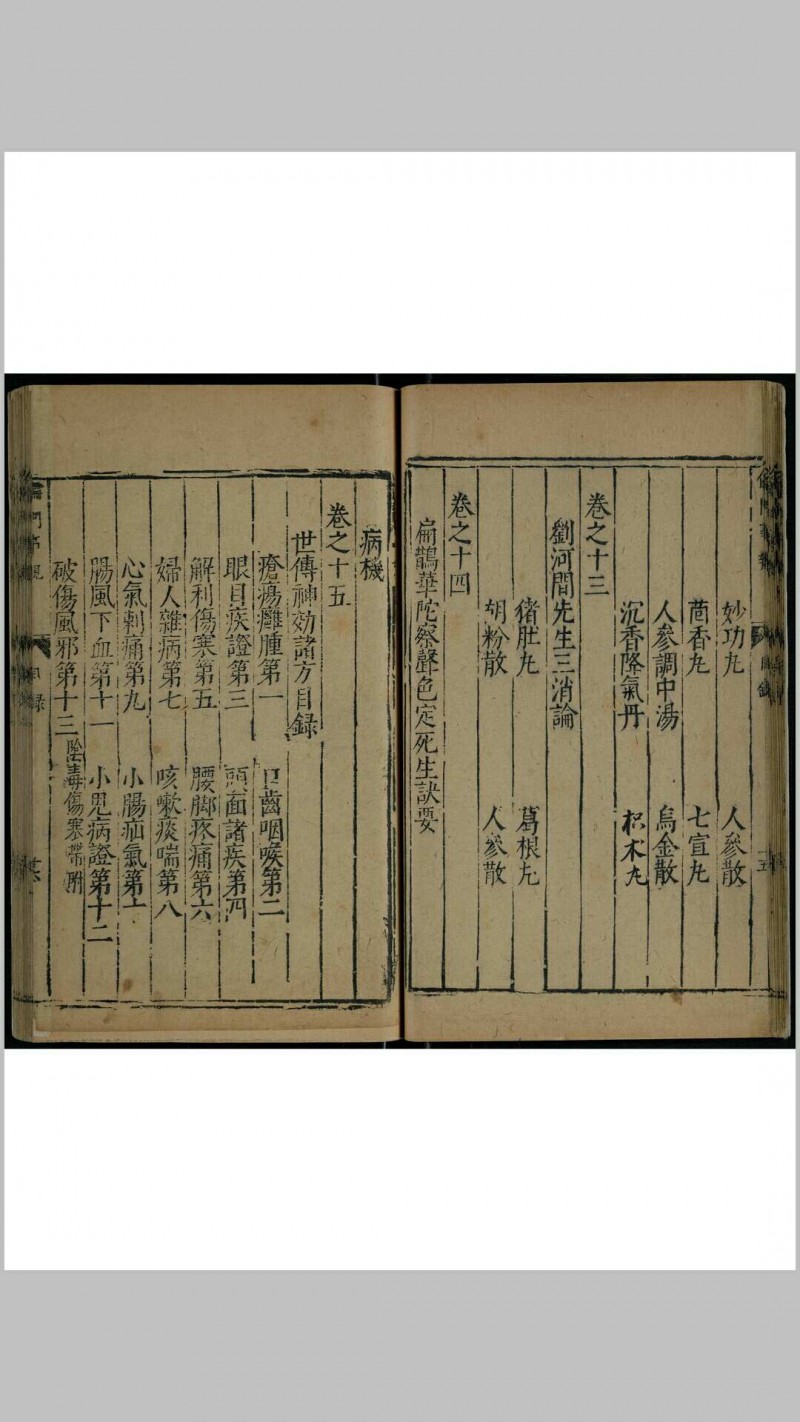 妙功丸 人參散
茴香丸 七宣丸
人參調中湯 烏金散
沉香降氣丹 枳朮丸
卷之十三
劉河間先生三消論
猪肚丸 葛根丸
胡粉散 人參散
卷之十四
扁鵲華陀察聲色定死生訣要
病機
卷之十五
世傳神効諸方目録
瘡瘍癰腫第一 口齒咽喉第二
眼目疾證第三 頭面諸疾第四
解利傷寒第五 腰脚疼痛第六
婦人雜病第七 咳嗽痰喘第八
心氣刺痛第九 小腸疝氣第十
腸風下血第十一 小児病證第十二
破傷風邪第十三 陰毒傷寒帶附
目録